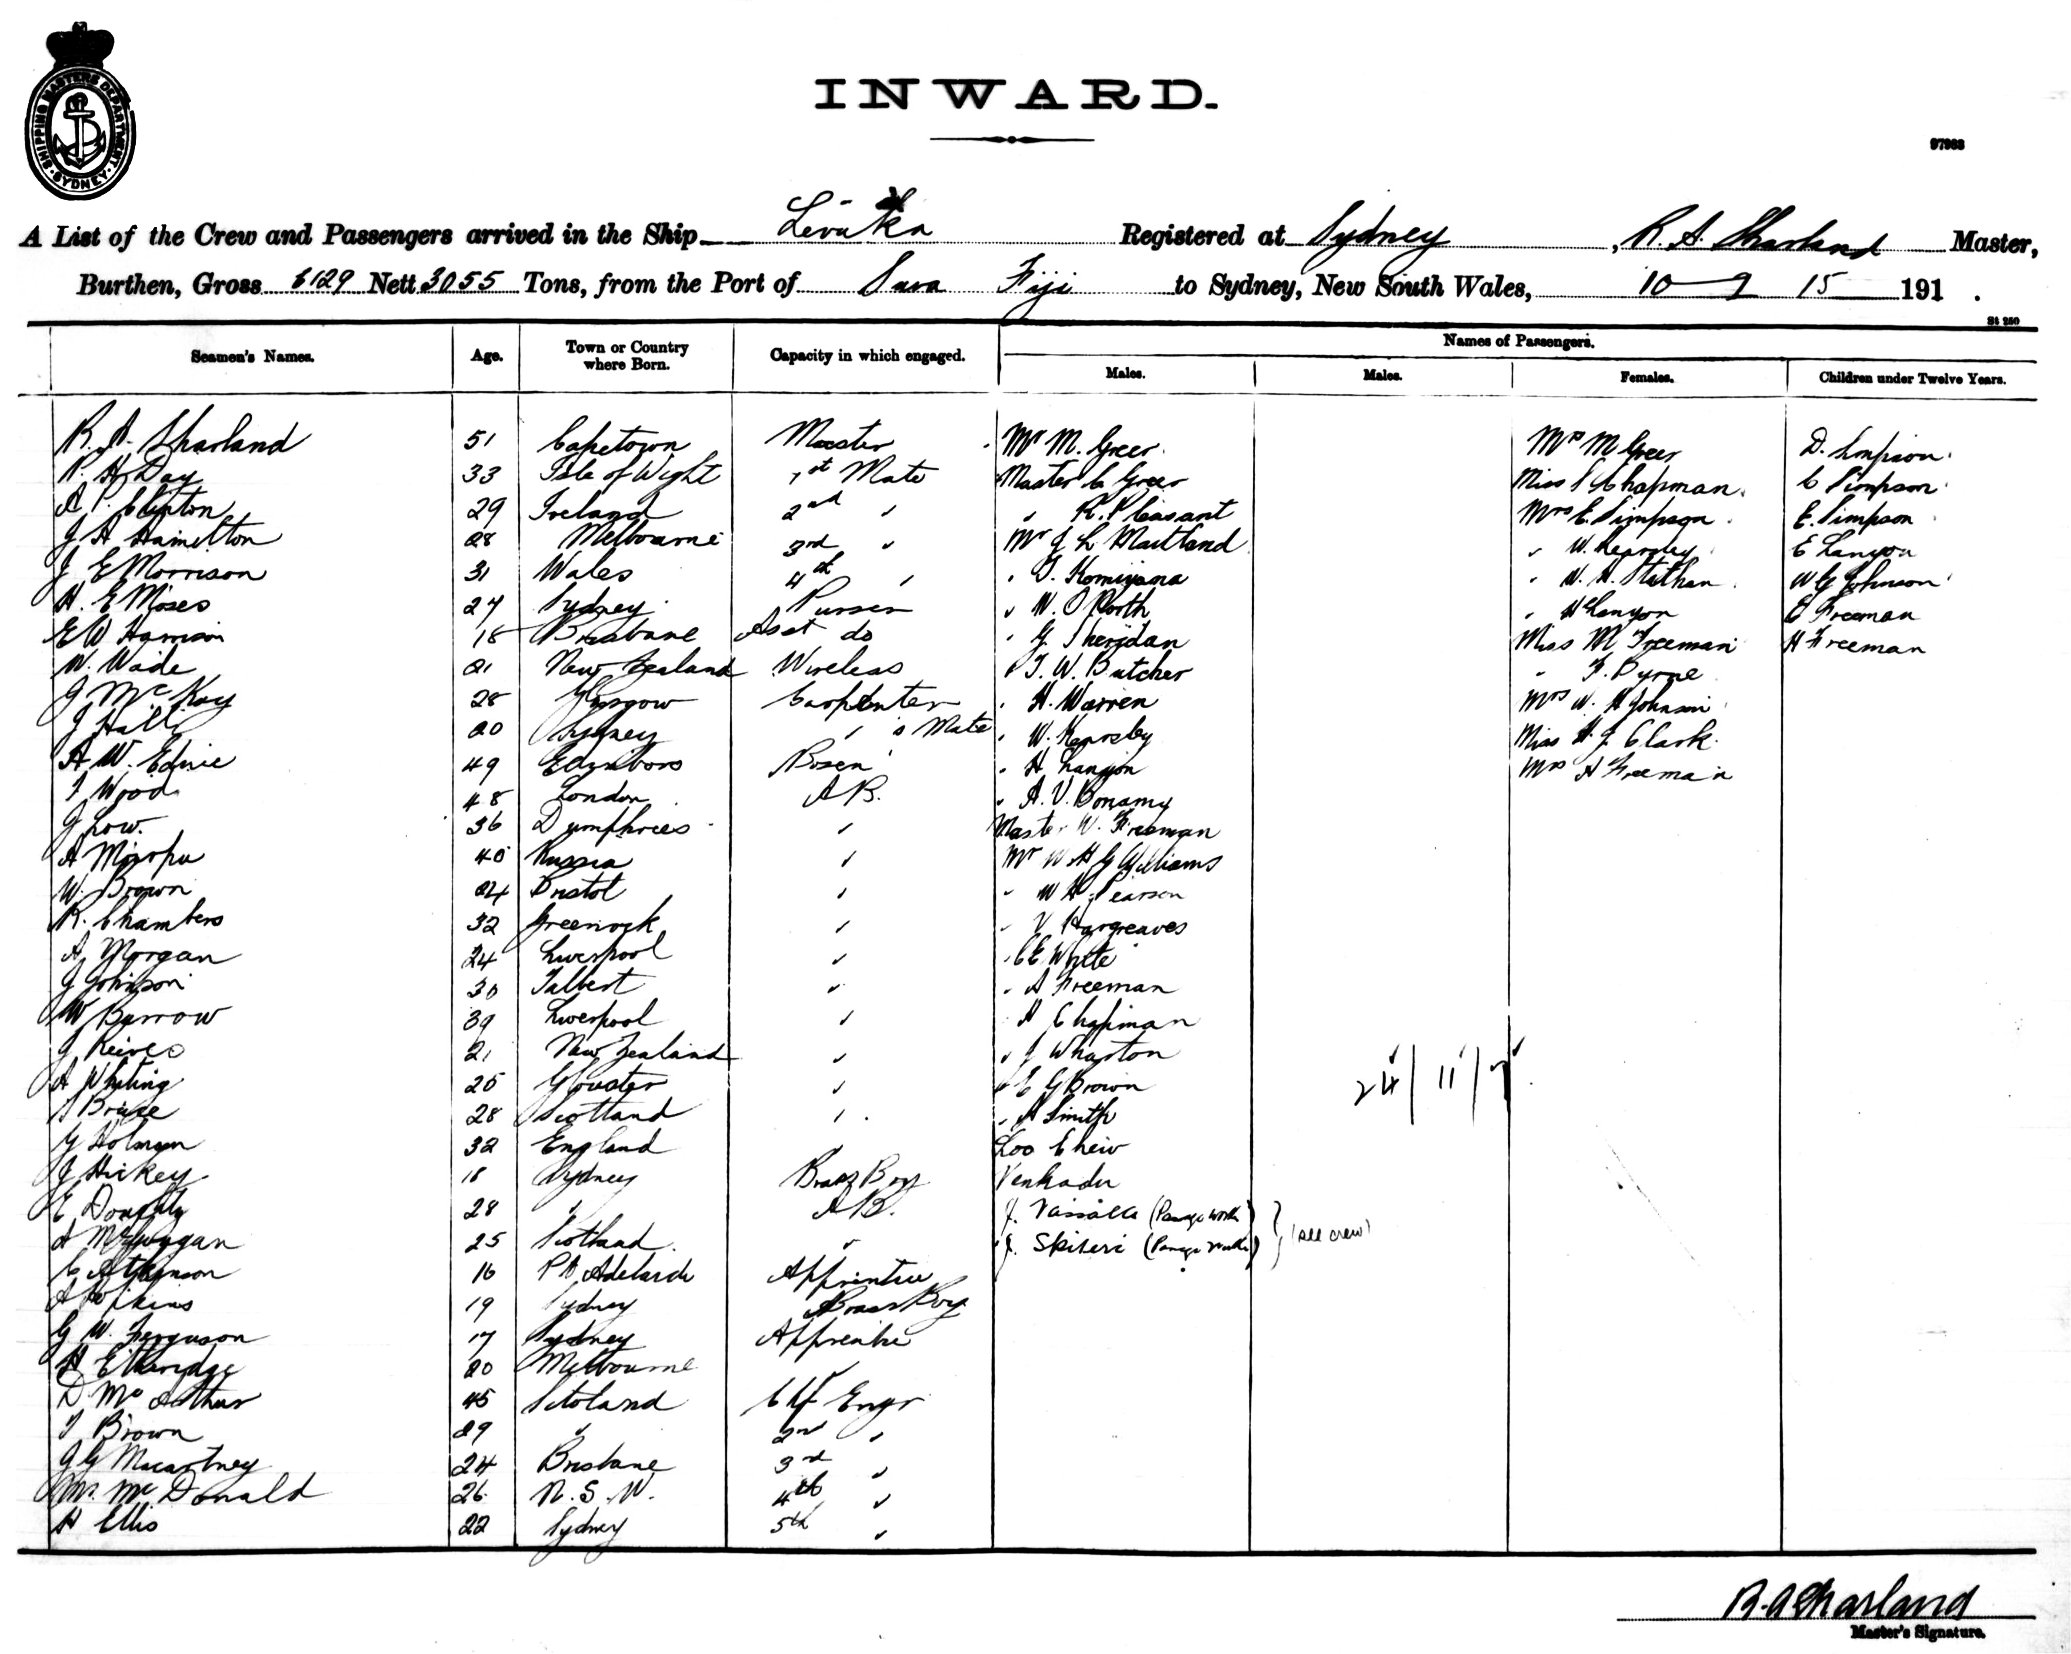 SHIPPING MASTERS DEPARTMENT
SYDNEY
INWARD.
97963
A List of the Crew and Passengers arrived in the Ship Levuka Registered at Sydney, R. A. Sharland Master,
Burthen, Gross 6129 Nett 3055 Tons, from the Port of Suva Fiji to Sydney, New South Wales, 10 9 15 191 .
St 250
Seamen's Names. Age. Town or Country where Born. Capacity in which engaged. Names of Passengers.
Males. Males. Females. Children under Twelve Years.
R. A. Sharland 51 Capetown Master Mr M. Greer Mrs M Greer D. Simpson
P. H. Day 33 Isle of Wight 1st Mate Master C Greer Miss S Chapman C Simpson
A P. Clinton 29 Ireland 2nd " " R. Pleasant Mrs E. Simpson E. Simpson
J H Hamelton 28 Melbourne 3rd " Mr J L Maitland " W. Kearsley E Lanyon
J E Morrison 31 Wales 4th " " T. Komiyana " W. H. Stathan W G Johnson
H. E Moses 24 Sydney Purser " W. O North " H Lanyon E Freeman
E W Harrison 18 Brisbane Asst do " G Sheridan Miss M Freeman H Freeman
W. Wade 21 New Zealand Wireless " T. W. Butcher " F. Byrne
J McKay 28 Glasgow Carpenter " H. Warren Mrs W. H Johnson
J Hall 20 Sydney " s Mate " W. Kearsley Miss H J Clark
A W. Ednie 49 Edinboro Bosen " H Lanyon Mrs H Freeman
J Wood 48 London A B. " A. V. Bonamy
J Low. 36 Dumphries " Master W. Freeman
A 40 Russia " Mr W H G Williams
W. Brown 24 Bristol " " W H Pearson
R. Chambers 32 Greenock " " V Hargreaves
A Morgan 24 Liverpool " " C E White
J Johnson 30 Talbert " " A Freeman
W Barrow 39 Liverpool " A Chapman
J Reives 21 New Zealand " " J Wharton
A Whiting 25 Glouster " " E G Brown
24 / 11 / 7
S Bruce 28 Scotland " " A Smith
G Holman 32 England " Loo Chew
J Hickey 18 Sydney Brass Boy Venkadu
E Doughty 28 " A B. J. Vassalla (Passage Worker)
A McGuygan 25 Scotland " J. Skiberi (Passage Worker) (see crew)
C Atkinson 16 Pt Adelaide Apprentice
A Pipkins 19 Sydney Brass Boy
G W. Ferguson 17 Sydney Apprentice
H Etheridge 20 Melbourne "
D Mc Arthur 45 Scotland Chf Engr
T Brown 29 " 2nd "
J G Macartney 24 Brisbane 3rd "
M. Mc Donald 26 N. S. W. 4th "
H Ellis 22 Sydney 5th "
R. A Sharland
Master's Signature.